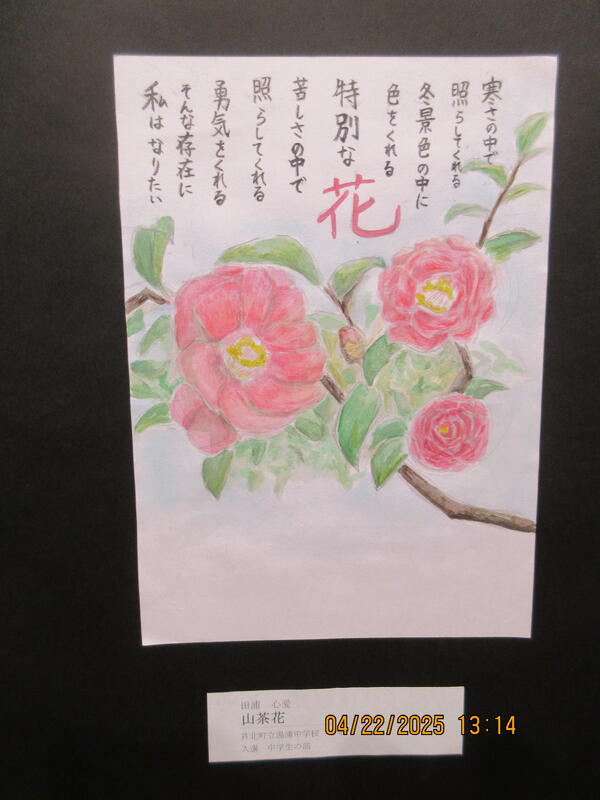 寒さの中で
照らしてくれる
冬景色の中に
色をくれる
特別な
花
苦しさの中で
照らしてくれる
勇気をくれる
そんな存在に
私はなりたい
田浦 心愛
山茶花
芦北町立湯浦中学校
入選 中学生の部
04/22/2025 13:14